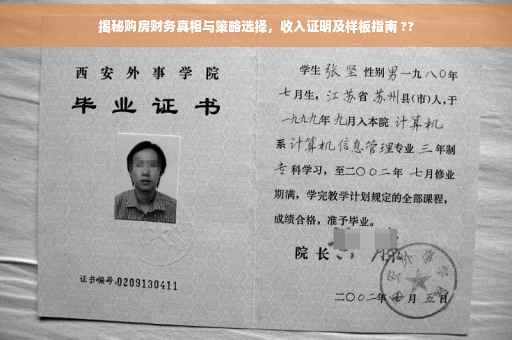 揭秘购房财务真相与策略选择，收入证明及样板指南 ??
西安外事学院
毕业证书
证书编号:0209130411
学生 张坚 性别男一九八〇年
七月生，江苏省苏州县(市)人，于
一九九九年九月入本院 计算机
系 计算机信息管理专业 三 年制
专科学习，至二〇〇二年 七月修业
期满，学完教学计划规定的全部课程，
成绩合格，准予毕业。
院长
二〇〇二年 月 五日